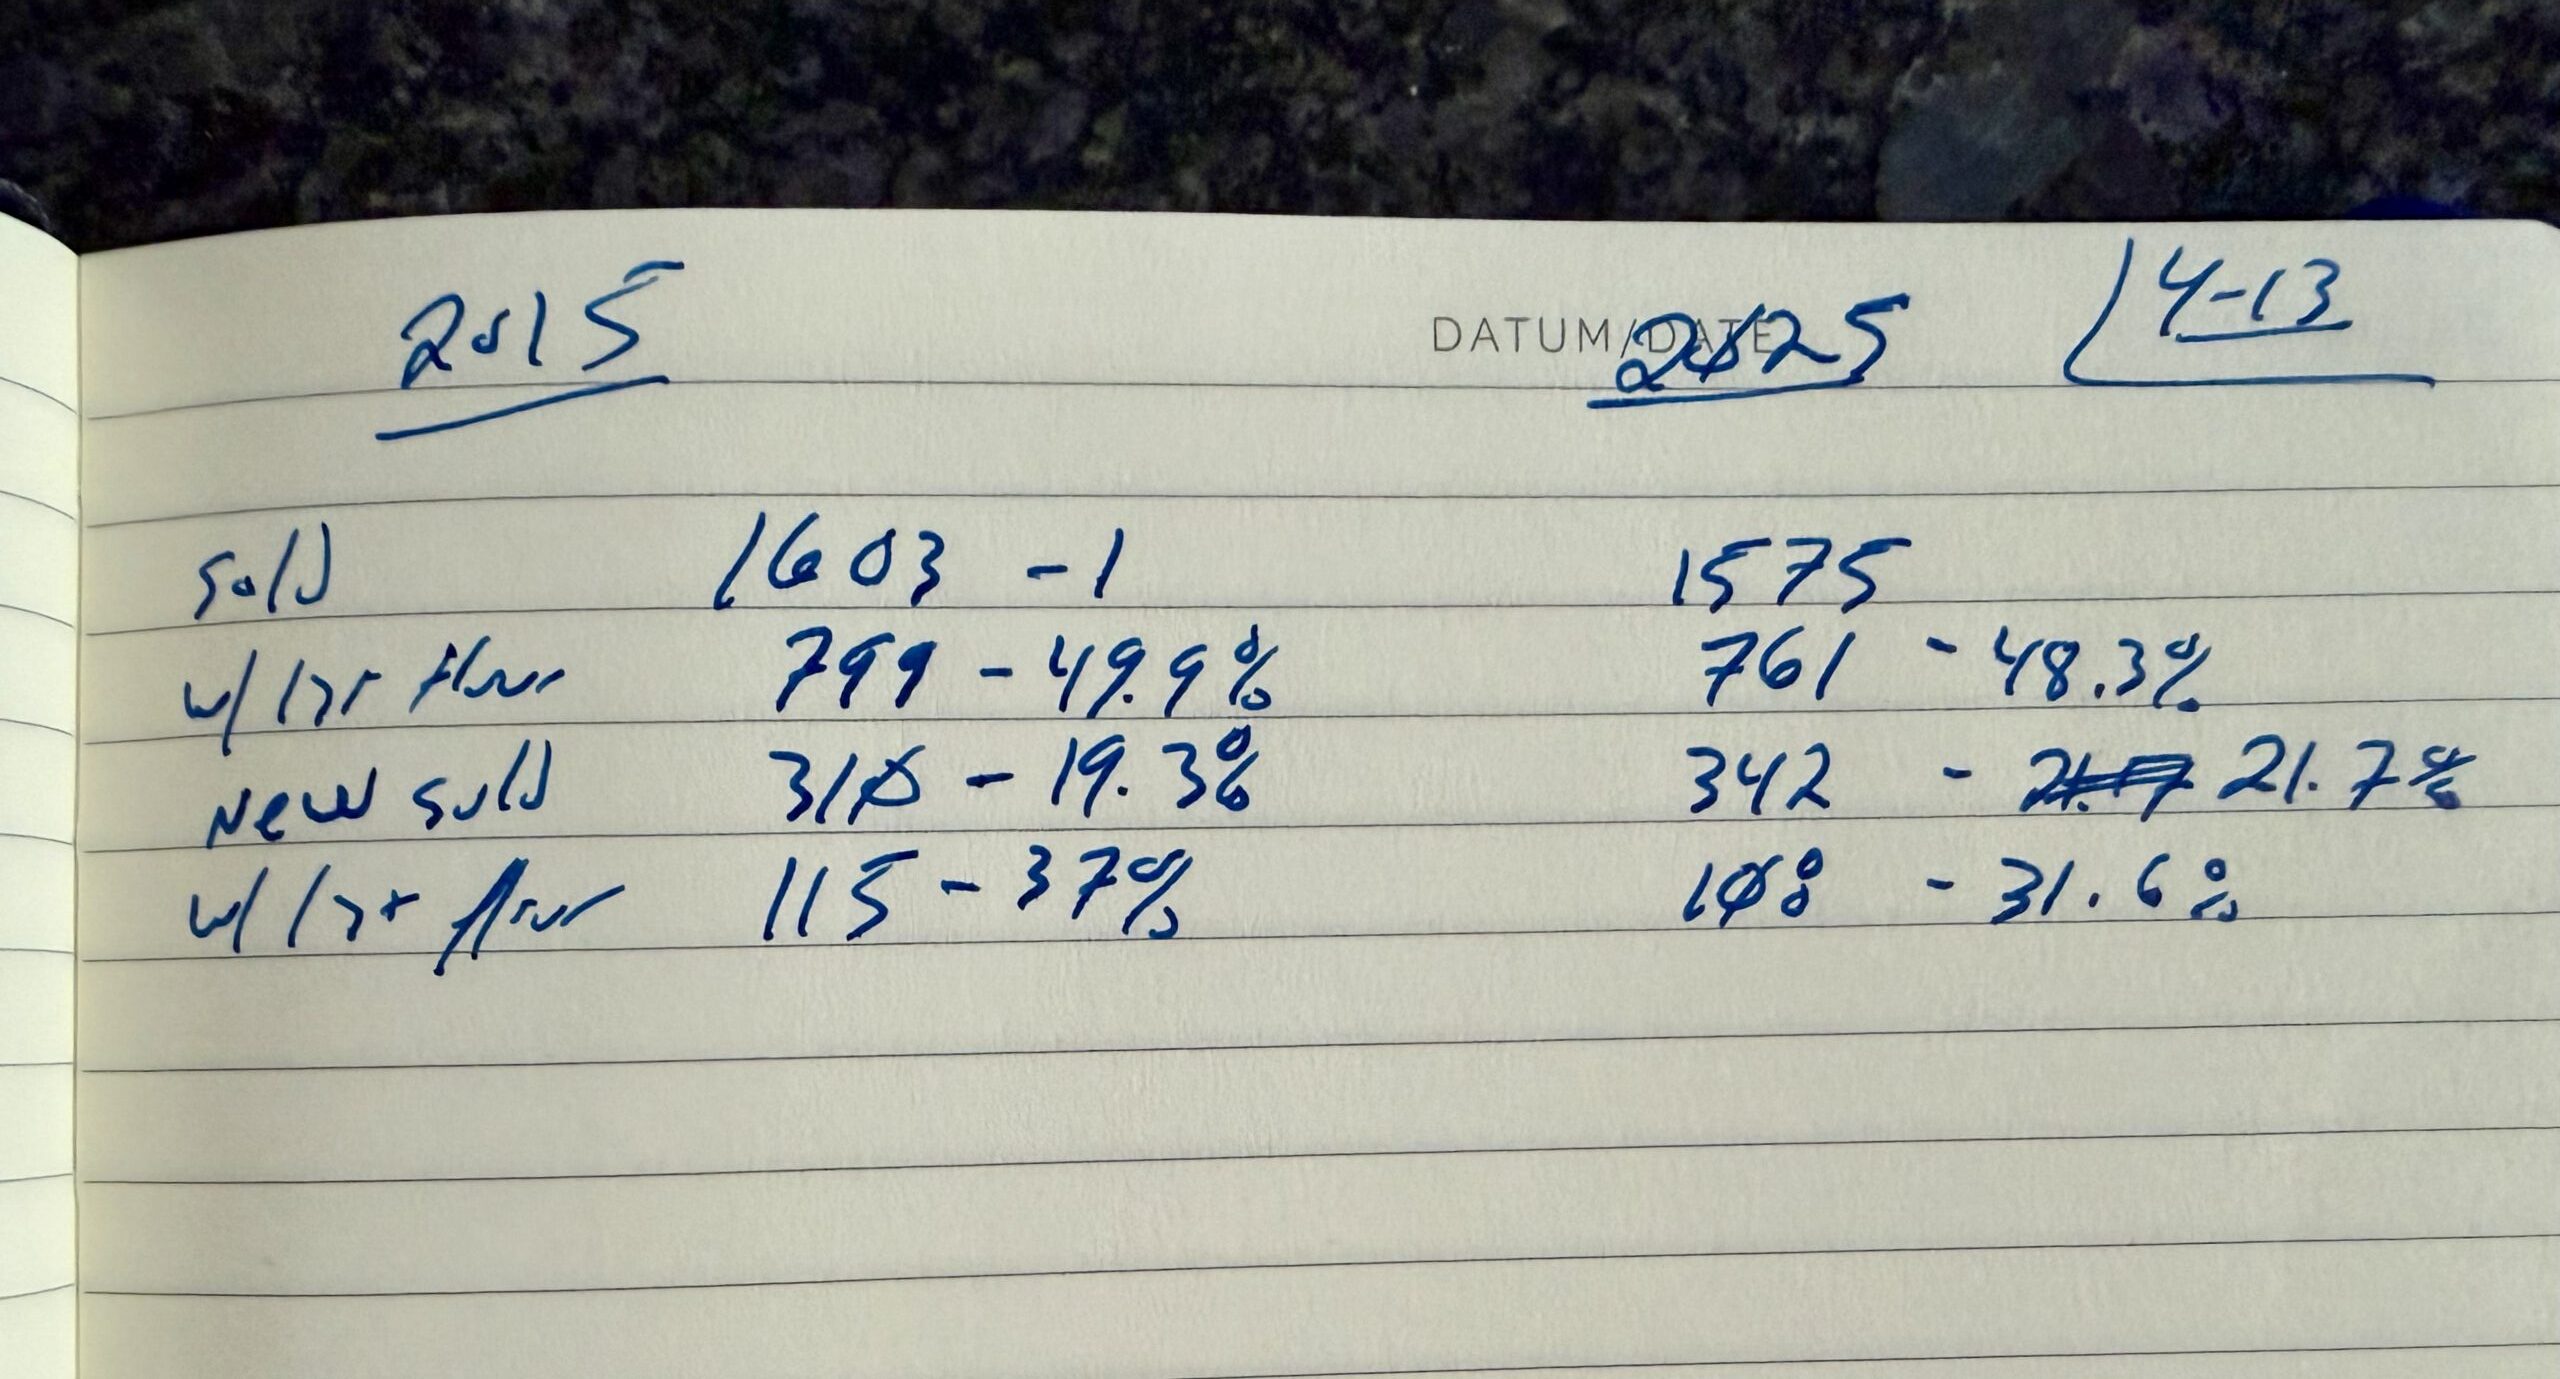 2015 DATUM/DATE 2025 4-13
sold 1603 - 1 1575
w/ 1st floor 799 - 49.9% 761 - 48.3%
New sold 310 - 19.3% 342 - 21.7 21.7%
w/ 1st floor 115 - 37% 108 - 31.6%